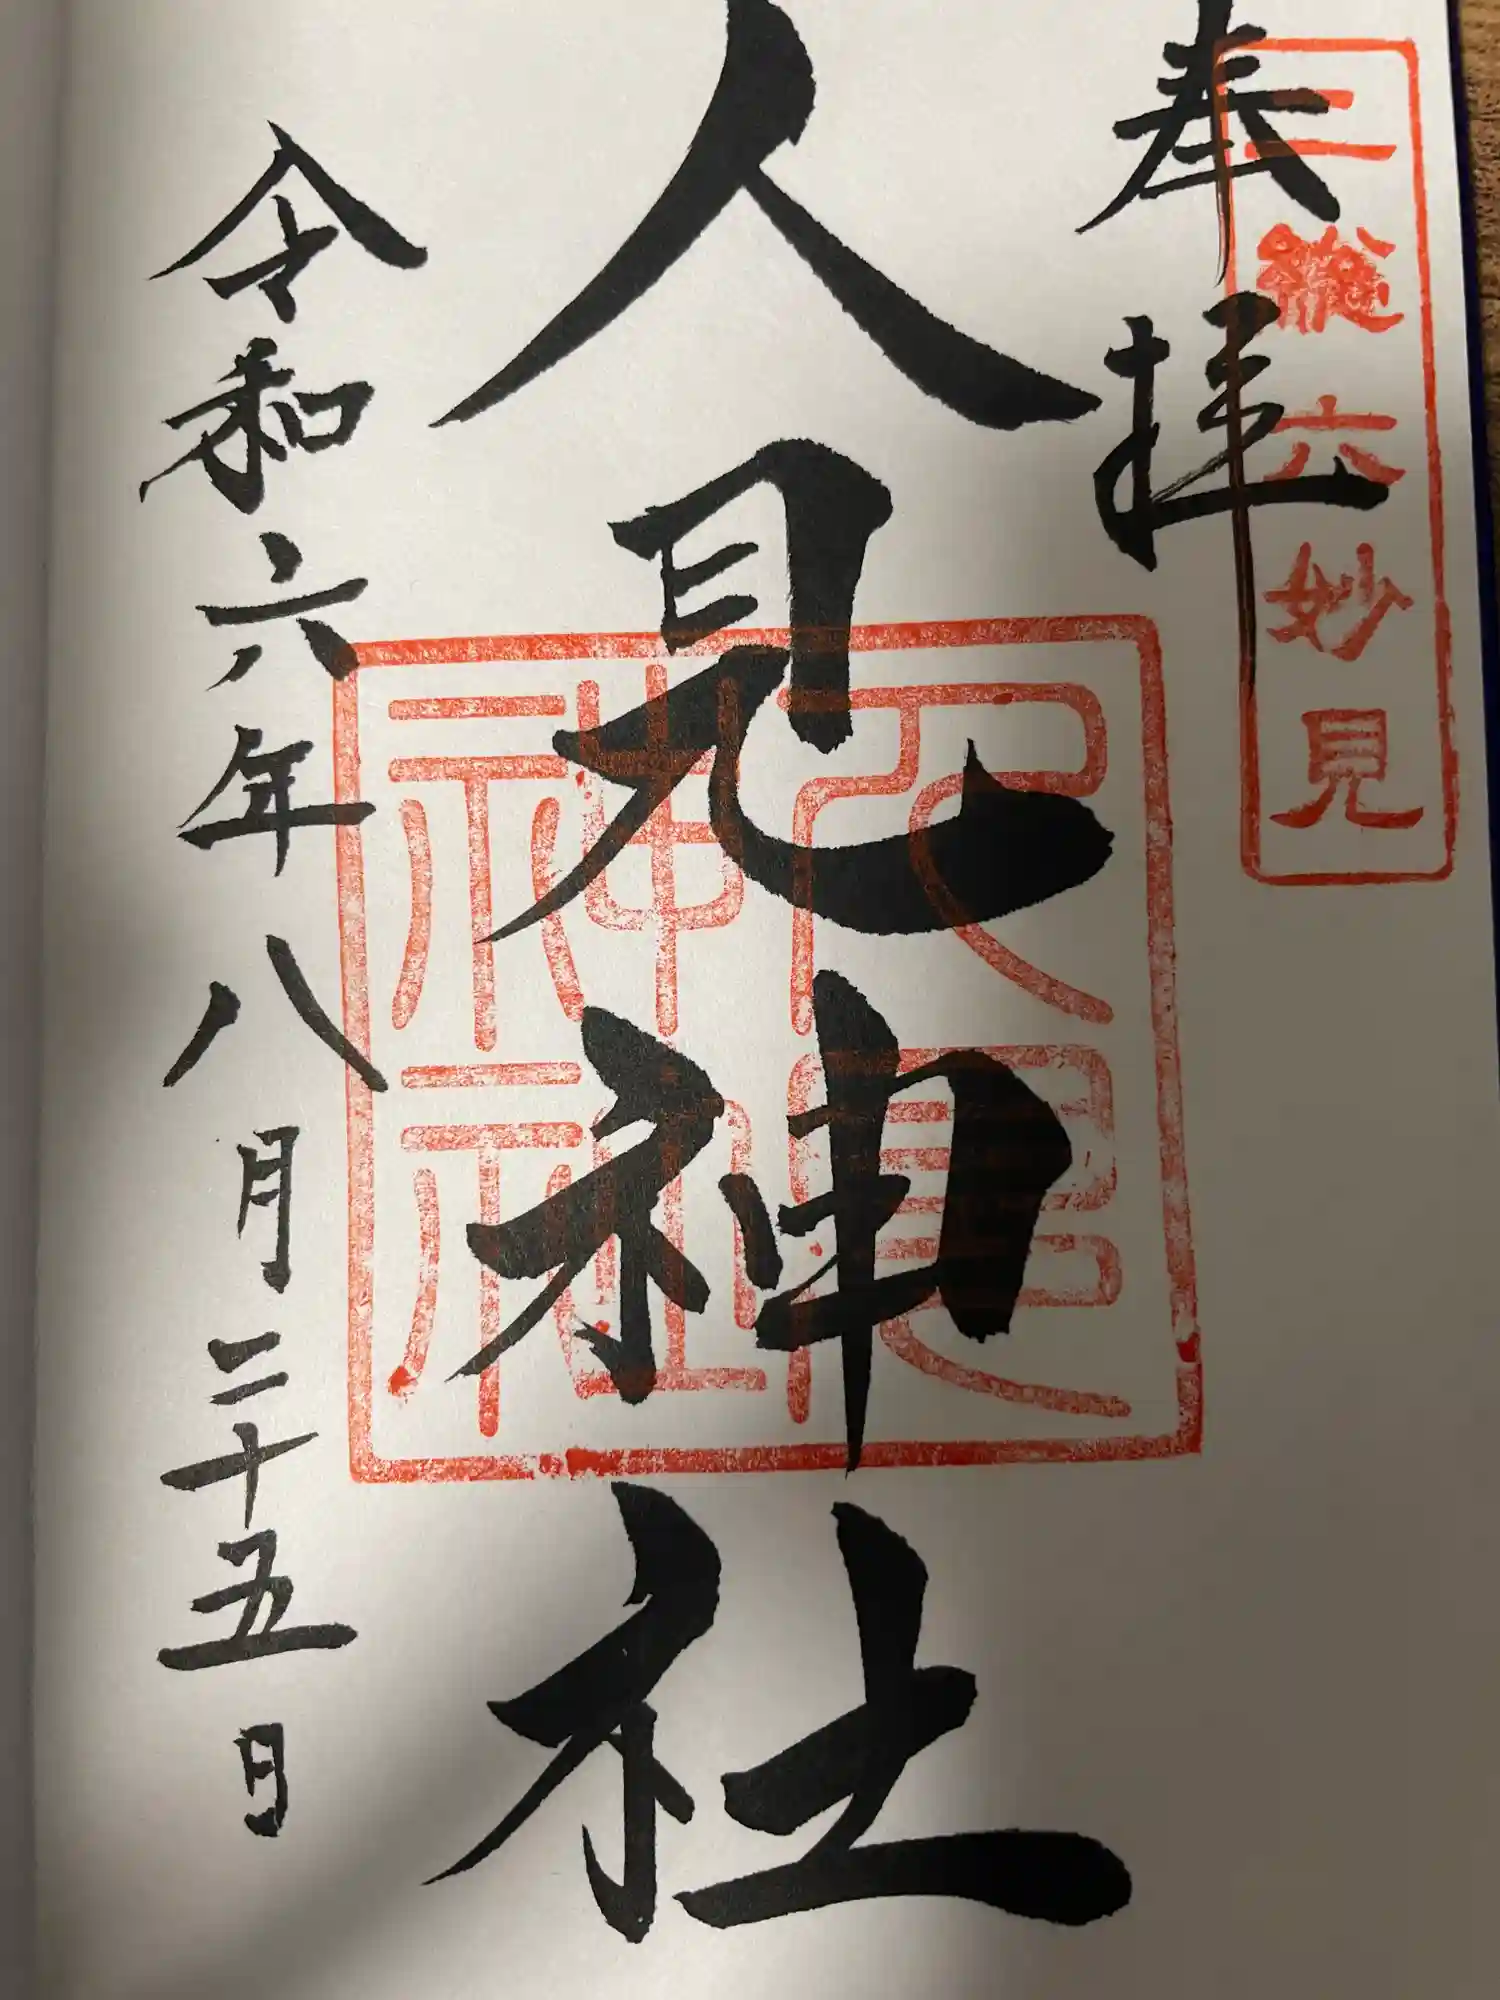 二総六妙見
奉拝
人見神社
神社
令和六年八月二十五日